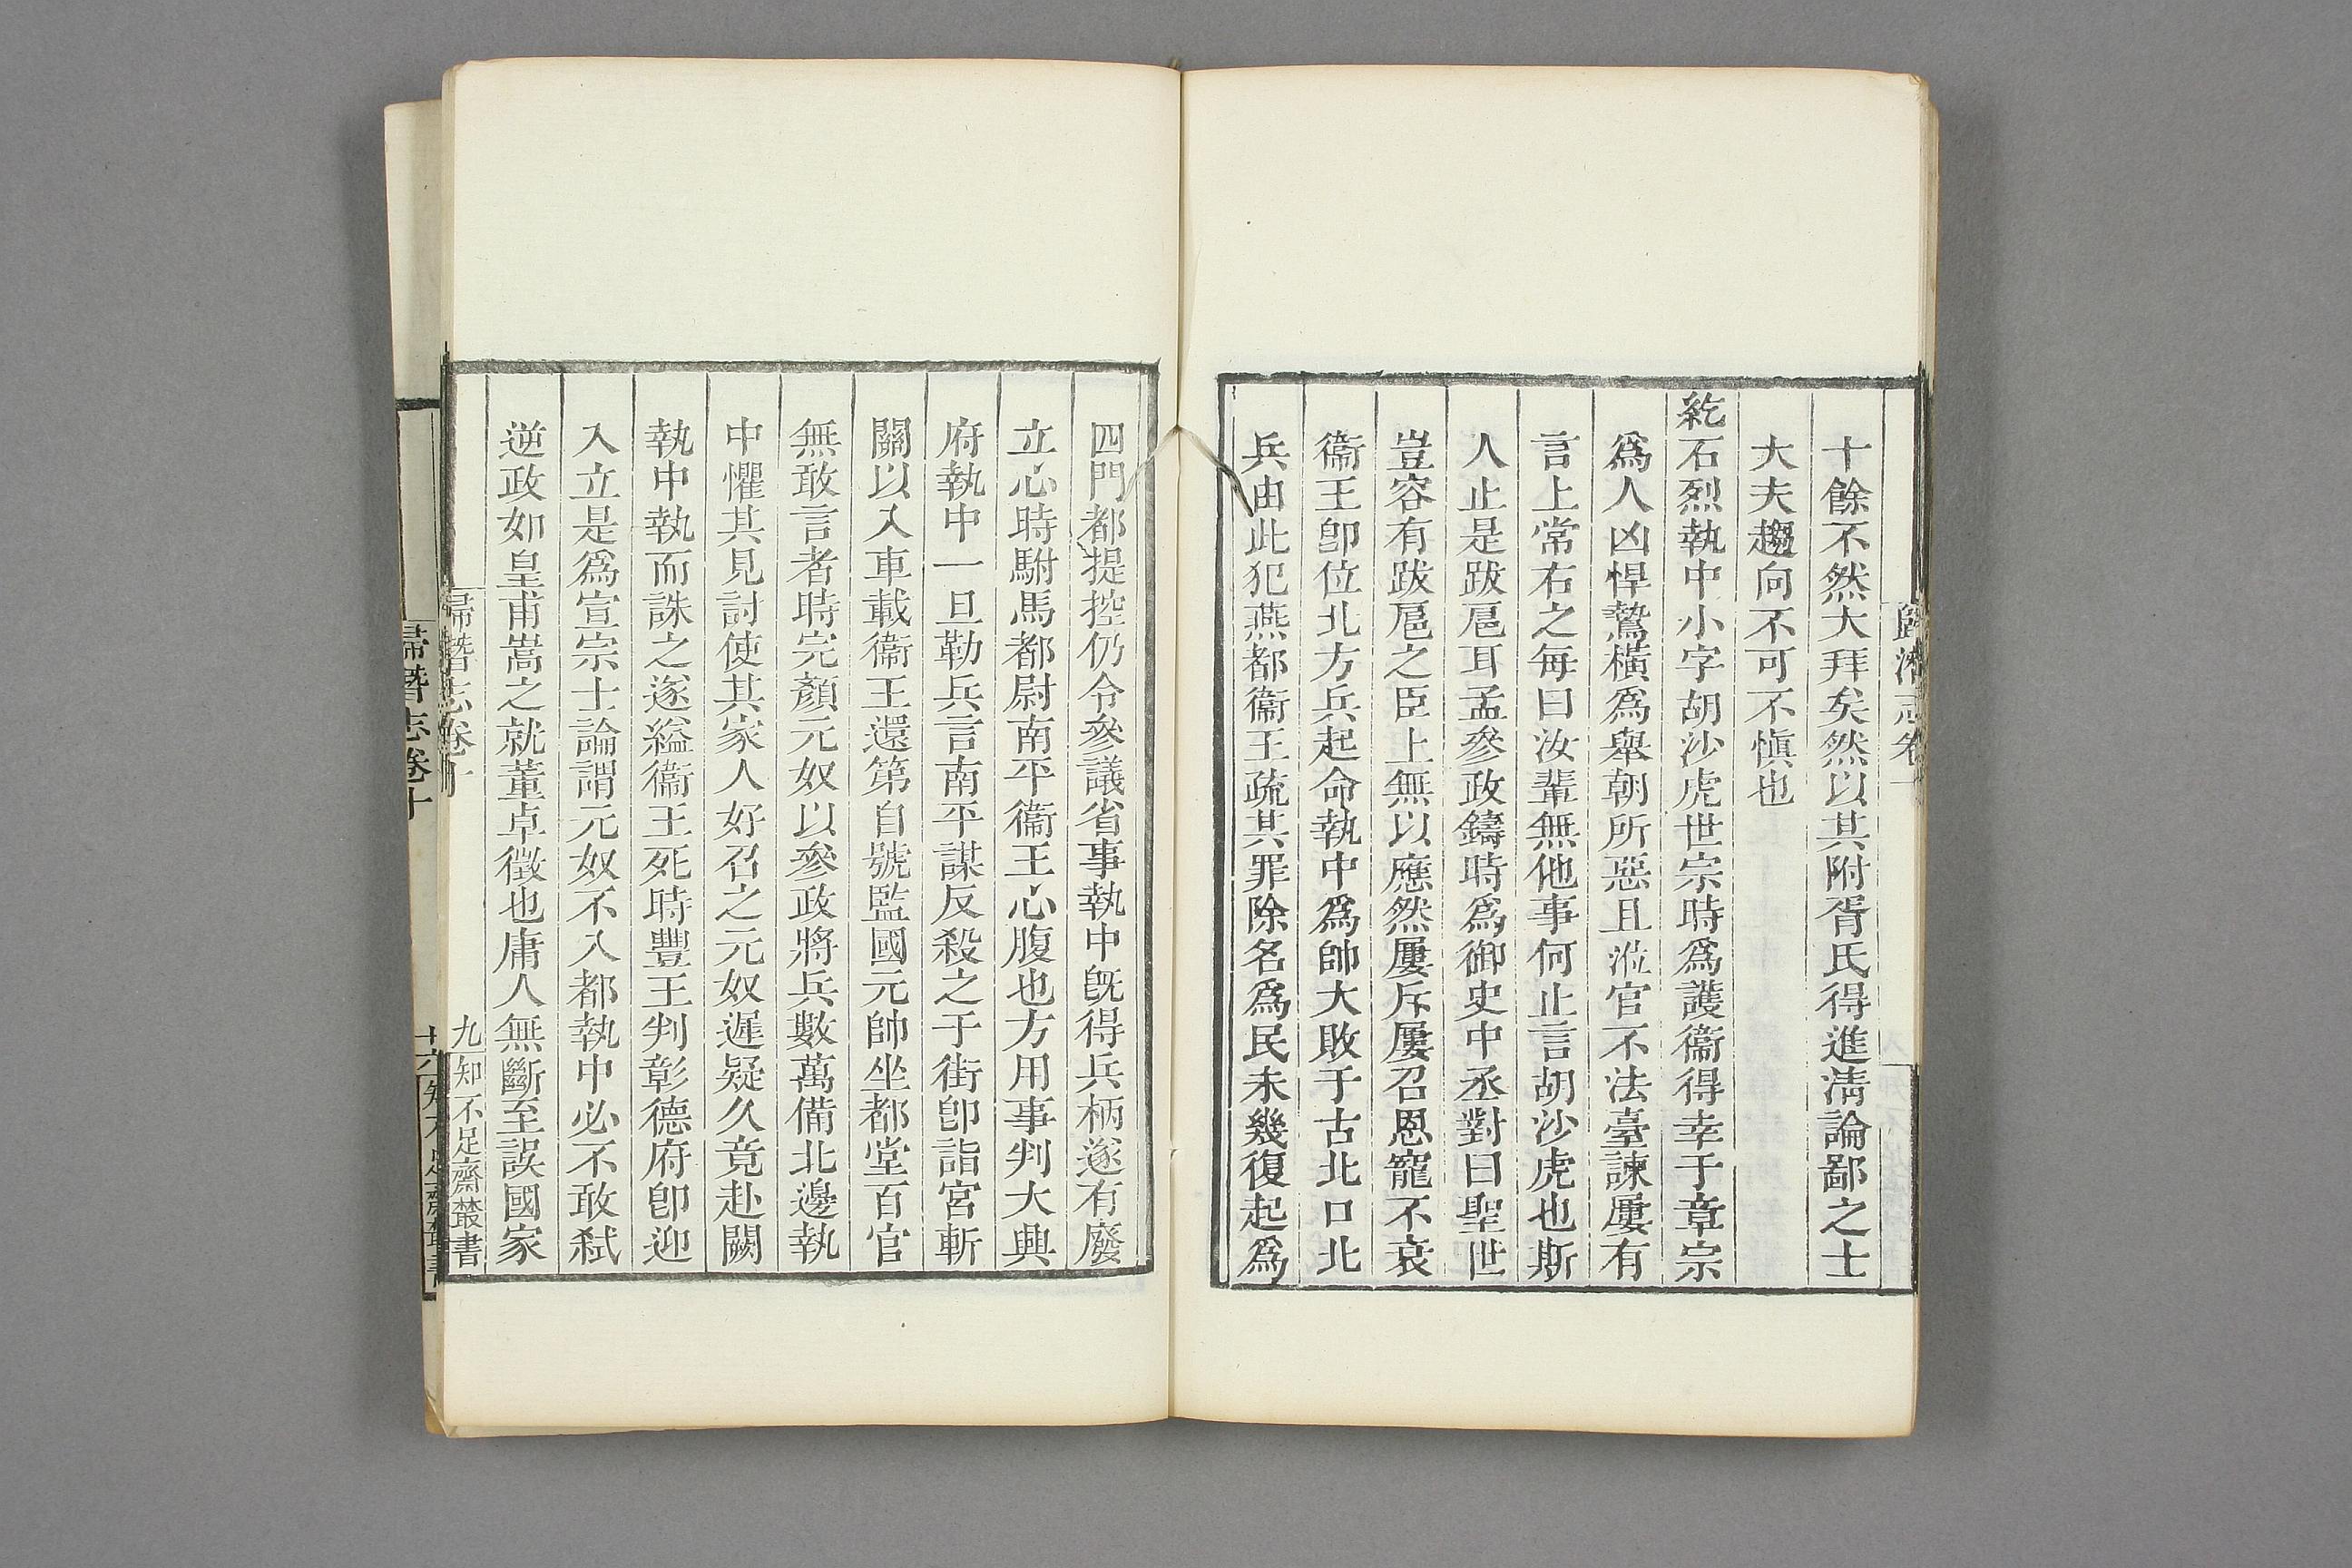 十餘不然大拜矣然以其附胥氏得進淸論鄙之士
大夫趨向不可不愼也
紇石烈執中小字胡沙虎世宗時爲護衞得幸于章宗
爲人凶悍鷙橫爲舉朝所惡且涖官不法臺諫屢有
言上常右之每曰汝輩無他事何止言胡沙虎也斯
人止是跋扈耳孟參政鑄時爲御史中丞對曰聖世
豈容有跋扈之臣上無以應然屢斥屢召恩寵不衰
衞王卽位北方兵起命執中爲帥大敗于古北口北
兵由此犯燕都衞王疏其罪除名爲民未幾復起爲
四門都提控仍令參議省事執中旣得兵柄遂有廢
立心時駙馬都尉南平衞王心腹也方用事判大興
府執中一旦勒兵言南平謀反殺之于街卽詣宮斬
關以入車載衞王還第自號監國元帥坐都堂百官
無敢言者時完顏元奴以參政將兵數萬備北邊執
中懼其見討使其家人好召之元奴遲疑久竟赴闕
執中執而誅之遂縊衞王死時豐王判彰德府卽迎
入立是爲宣宗士論謂元奴不入都執中必不敢弑
逆政如皇甫嵩之就董卓徵也庸人無斷至誤國家
歸潛志卷十
九
知不足齋叢書
歸潛志卷十
十六
知不足齋叢書